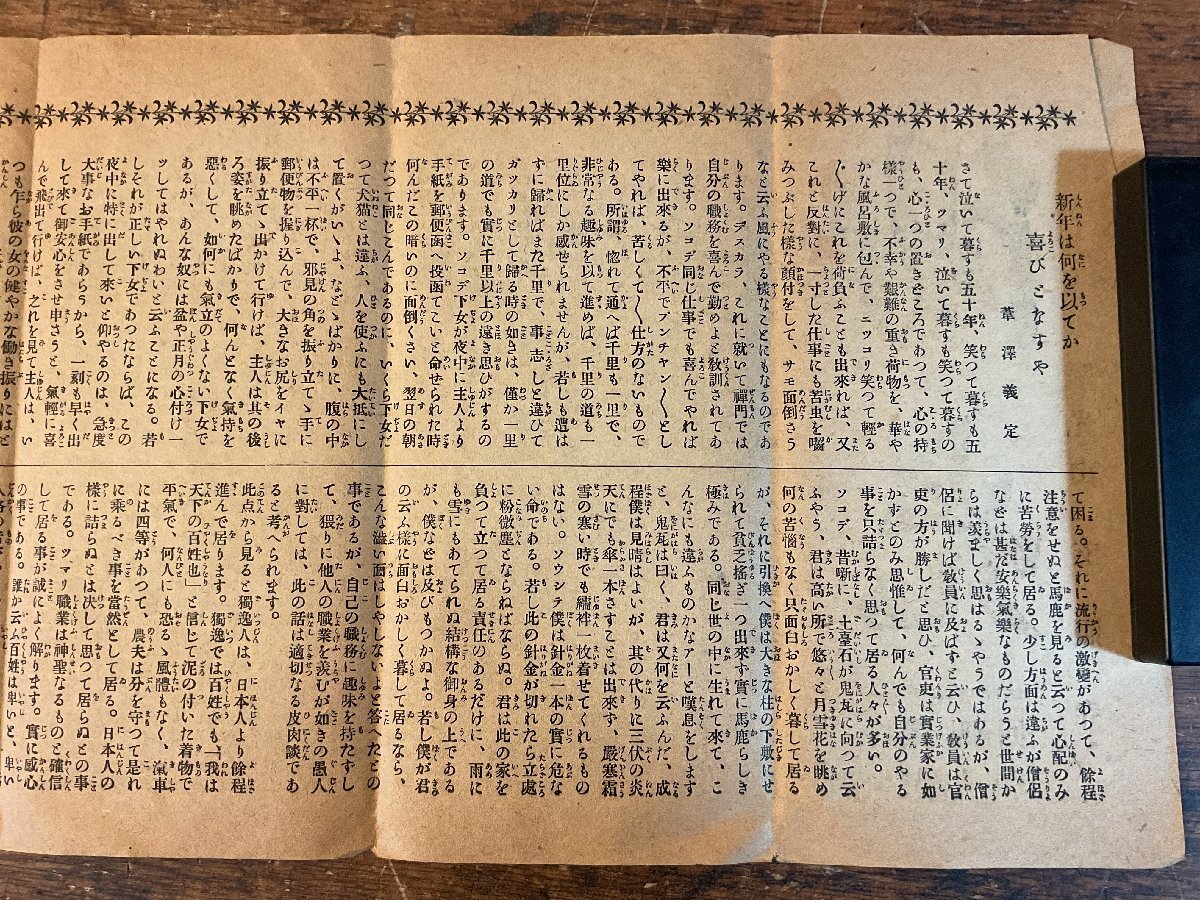 新年は何を以てか
喜びとなすや
葦澤義定
さて泣いて暮すも五十年、笑つて暮すも五
十年、ツマリ、泣いて暮すも笑つて暮すの
も、心一つの置きどころであつて、心の持
樣一つで、不幸や艱難の重き荷物を、華や
かな風呂敷に包んで、ニッコリ笑つて輕る
〴〵げにこれを荷負ふことも出來れば、又
これと反對に、一寸した仕事にも苦虫を嚙
みつぶした樣な顔付をして、サモ面倒さう
なと云ふ風にやる樣なことにもなるのであ
ります。デスカラ、これに就いて禪門では
自分の職務を喜んで勤めよと敎訓されてあ
ります。ソコデ同じ仕事でも喜んでやれば
樂に出來るが、不平でブンチャン〳〵とし
てやれば、苦しくて〳〵仕方のないもので
ある。所謂、惚れて通へば千里も一里で、
非常なる趣味を以て進めば、千里の道も一
里位にしか感せられませんが、若しも遭は
ずに歸ればまた千里で、事志しと違ひて
ガッカリとして歸る時の如きは、僅か一里
の道でも實に千里以上の遠き思ひがするの
であります。ソコデ下女が夜中に主人より
手紙を郵便函へ投函てこいと命せられた時
何んだこの暗いのに面倒くさい、翌日の朝
だつて同じこんであるのに、いくら下女だ
つて犬猫とは違ふ、人を使ふにも大抵にし
て置くがいゝよ、などゝばかりに、腹の中
は不平一杯で、邪見の角を振り立てゝ手に
郵便物を握り込んで、大きなお尻をイャに
振り立てゝ出かけて行けば、主人は其の後
ろ姿を眺めたばかりで、何んとなく氣持を
惡くして、如何にも氣立のよくない下女で
あるが、あんな奴には盆や正月の心付け一
ツしてはやれぬわいと云ふことになる。若
しそれが正しい下女であつたならば、この
夜中に特に出して來いと仰やるのは、急度
大事なお手紙であらうから、一刻も早く出
して來て御安心をさせ申さうと、氣輕に喜
んで飛出て行けば、之れを見て主人は、い
つも乍ら彼の女の健やかな働き振りにはと
て困る。それに流行の激變があつて、餘程
注意をせぬと馬鹿を見ると云つて心配のみ
に苦勞をして居る。少し方面は違ふが僧侶
などは甚だ安樂氣樂なものだらうと世間か
らは羨ましく思はるゝやうではあるが、僧
侶に聞けば敎員に及ばすと云ひ、敎員は官
吏の方が勝しだと思ひ、官吏は實業家に如
かずとのみ思惟して、何んでも自分のやる
事を只詰らなく思つて居る人々が多い。
ソコデ、昔噺に、土臺石が鬼瓦に向つて云
ふやう、君は高い所で悠々と月雪花を眺め
何の苦惱もなく只面白おかしく暮して居る
が、それに引換へ僕は大きな柱の下敷にせ
られて貧乏搖ぎ一つ出來ず實に馬鹿らしき
極みである。同じ世の中に生れて來て、こ
んなにも違ふものかなアーと嘆息をします
と、鬼瓦は曰く、君は又何を云ふんだ、成
程僕は見晴はよいが、其の代りに三伏の炎
天にでも傘一本さすことは出來ず、嚴寒霜
雪の寒い時でも繻袢一枚着せてくれるもの
はない。ソウシテ僕は針金一本の實に危な
い命である。若し此の針金が切れたら立處
に粉微塵とならねばならぬ。君は此の家を
負つて立つて居る責任のあるだけに、雨に
も雪にもあてられぬ結構な御身の上である
が、僕などは及びもつかぬよ。若し僕が君
の云ふ樣に面白おかしく暮して居るなら、
こんな澁い面はしやしないよと答へたとの
事であるが、自己の職務に趣味を持たずし
て、猥りに他人の職業を羨むが如きの愚人
に對しては、此の話は適切なる皮肉談であ
ると考へられます。
此点から見ると獨逸人は、日本人より餘程
進んで居ります。獨逸では百姓でも「我は
天下の百姓也」と信じて泥の付いた着物で
平氣で、何人にも恐るゝ風體もなく、滊車
には四等があつて、農夫は分を守つて是れ
に乘るべき事を當然として居る。日本人の
樣に詰らぬとは決して思つて居らぬとの事
である。ツマリ職業は神聖なるものと確信
して居る事が誠によく解ります。實に感心
の事である。誰か云ふ百姓は卑いやと、卑い